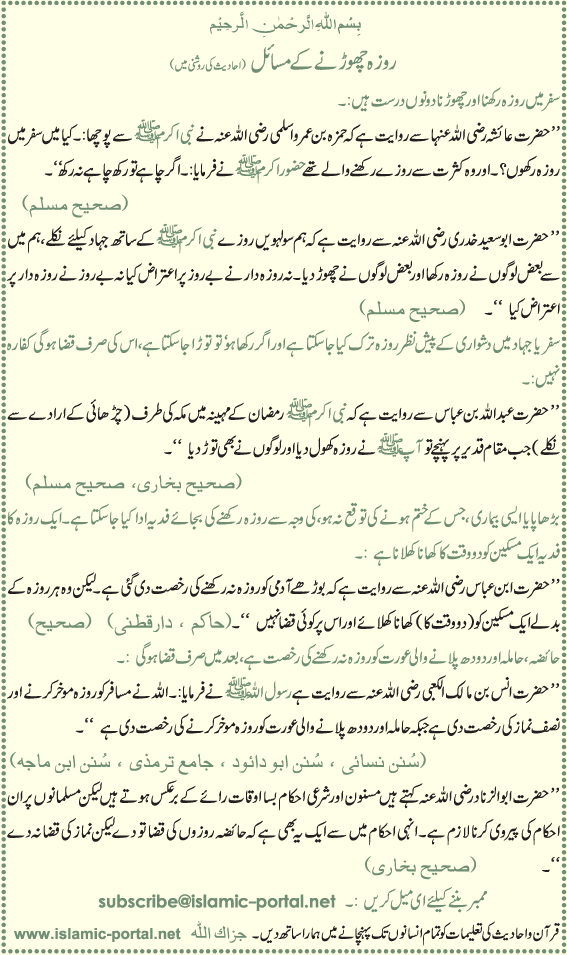 بِسْمِ اللهِ الرَّحْمٰنِ الرَّحِيْمِ
روزہ چھوڑنے کے مسائل (احادیث کی روشنی میں)
سفر میں روزہ رکھنا اور چھوڑنا دونوں درست ہیں:۔
’’حضرت عائشہ رضی اللہ عنہا سے روایت ہے کہ حمزہ بن عمرو اسلمی رضی اللہ عنہ نے نبی اکرم ﷺ سے پوچھا:۔ کیا میں سفر میں
روزہ رکھوں؟۔ اور وہ کثرت سے روزے رکھنے والے تھے حضور اکرم ﷺ نے فرمایا:۔ اگر چاہے تو رکھ چاہے نہ رکھ‘‘۔
(صحیح مسلم)
’’حضرت ابو سعید خدری رضی اللہ عنہ سے روایت ہے کہ ہم سولہویں روزے نبی اکرم ﷺ کے ساتھ جہاد کیلئے نکلے، ہم میں
سے بعض لوگوں نے روزہ رکھا اور بعض لوگوں نے چھوڑ دیا۔ نہ روزہ دار نے بے روز پر اعتراض کیا نہ بے روز نے روزہ دار پر
اعتراض کیا ‘‘۔ (صحیح مسلم)
سفر یا جہاد میں دشواری کے پیش نظر روزہ ترک کیا جا سکتا ہے اور اگر رکھا ہو تو توڑا جا سکتا ہے، اس کی صرف قضا ہو گی کفارہ
نہیں:۔
’’حضرت عبداللہ بن عباس سے روایت ہے کہ نبی اکرم ﷺ رمضان کے مہینہ میں مکہ کی طرف (چڑھائی کے ارادے سے
نکلے) جب مقام قدیر پر پہنچے تو آپ ﷺ نے روزہ کھول دیا اور لوگوں نے بھی توڑ دیا ‘‘۔
(صحیح بخاری، صحیح مسلم)
بڑھاپا یا ایسی بیماری، جس کے ختم ہونے کی توقع نہ ہو، کی وجہ سے روزہ رکھنے کی بجائے فدیہ ادا کیا جا سکتا ہے۔ ایک روزہ کا
فدیہ ایک مسکین کو دو وقت کا کھانا کھلانا ہے :۔
’’حضرت ابن عباس رضی اللہ عنہ سے روایت ہے کہ بوڑھے آدمی کو روزہ نہ رکھنے کی رخصت دی گئی ہے۔ لیکن وہ ہر روزہ کے
بدلے ایک مسکین کو (دو وقت کا) کھانا کھلائے اور اس پر کوئی قضا نہیں ‘‘۔ (حاکم ، دارقطنی) (صحیح)
حائضہ، حاملہ اور دودھ پلانے والی عورت کو روزہ نہ رکھنے کی رخصت ہے، بعد میں صرف قضا ہو گی :۔
’’حضرت انس بن مالک الکعبی رضی اللہ عنہ سے روایت ہے رسول اللہ ﷺ نے فرمایا:۔ اللہ نے مسافر کو روزہ موخر کرنے اور
نصف نماز کی رخصت دی ہے جبکہ حاملہ اور دودھ پلانے والی عورت کو روزہ موخر کرنے کی رخصت دی ہے ‘‘۔
(سُنن نسائی ، سُنن ابو دائود ، جامع ترمذی ، سُنن ابن ماجہ)
’’حضرت ابو الزناد رضی اللہ عنہ کہتے ہیں مسنون اور شرعی احکام بسا اوقات رائے کے برعکس ہوتے ہیں لیکن مسلمانوں پر ان
احکام کی پیروی کرنا لازم ہے۔ انہی احکام میں سے ایک یہ بھی ہے کہ حائضہ روزوں کی قضا تو دے لیکن نماز کی قضا نہ دے
‘‘۔ (صحیح بخاری)
ممبر بننے کیلئے ای میل کریں :۔ subscribe@islamic-portal.net
قرآن و احادیث کی تعلیمات کو تمام انسانوں تک پہنچانے میں ہمارا ساتھ دیں۔ جزاک اللہ www.islamic-portal.net